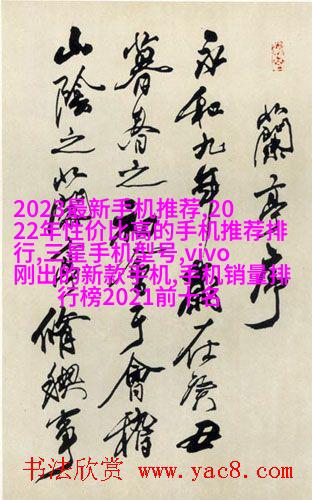 蘭亭序
永和九年歲在癸丑
暮春之初會于會稽
山陰之蘭亭脩禊事
2023最新手机推荐,20
22年性价比高的手机推荐排
行,三星手机型号,vivo
刚出的新款手机,手机销量排
行榜2021前十名
书法欣赏 www.yac8.com